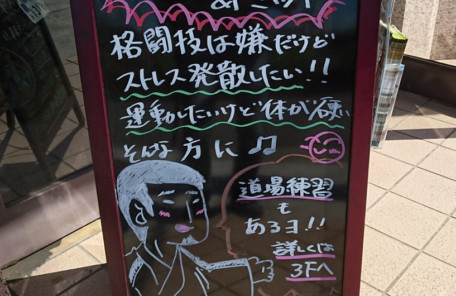 格闘技は嫌だけど
ストレス発散したい!!
運動したいけど体が硬い
そんな方に♫
道場練習
も
あるヨ!!
詳しくは
3Fへ